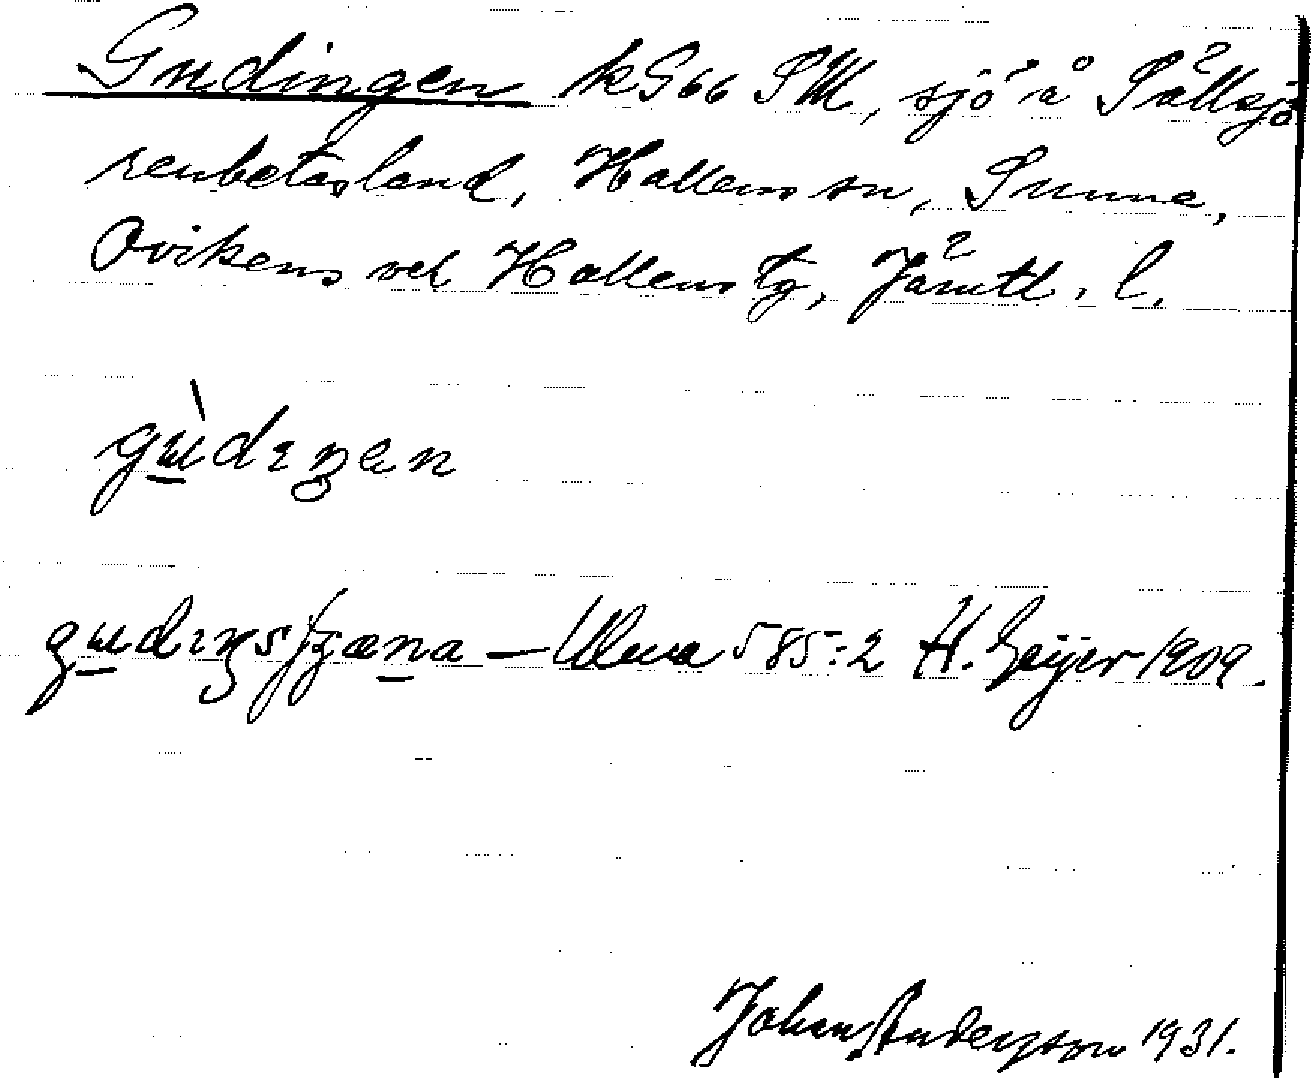 Gudingen kG66 SM, sjö å Sällsjö
renbetesland, Hallens sn, Sunne,
Ovikens och Hallens tg, Jämtl. l.
gùdıŋen
gudıŋsʃæna – Ulma 585:2 H. Geijer 1909.
Johan Anderzson 1931.